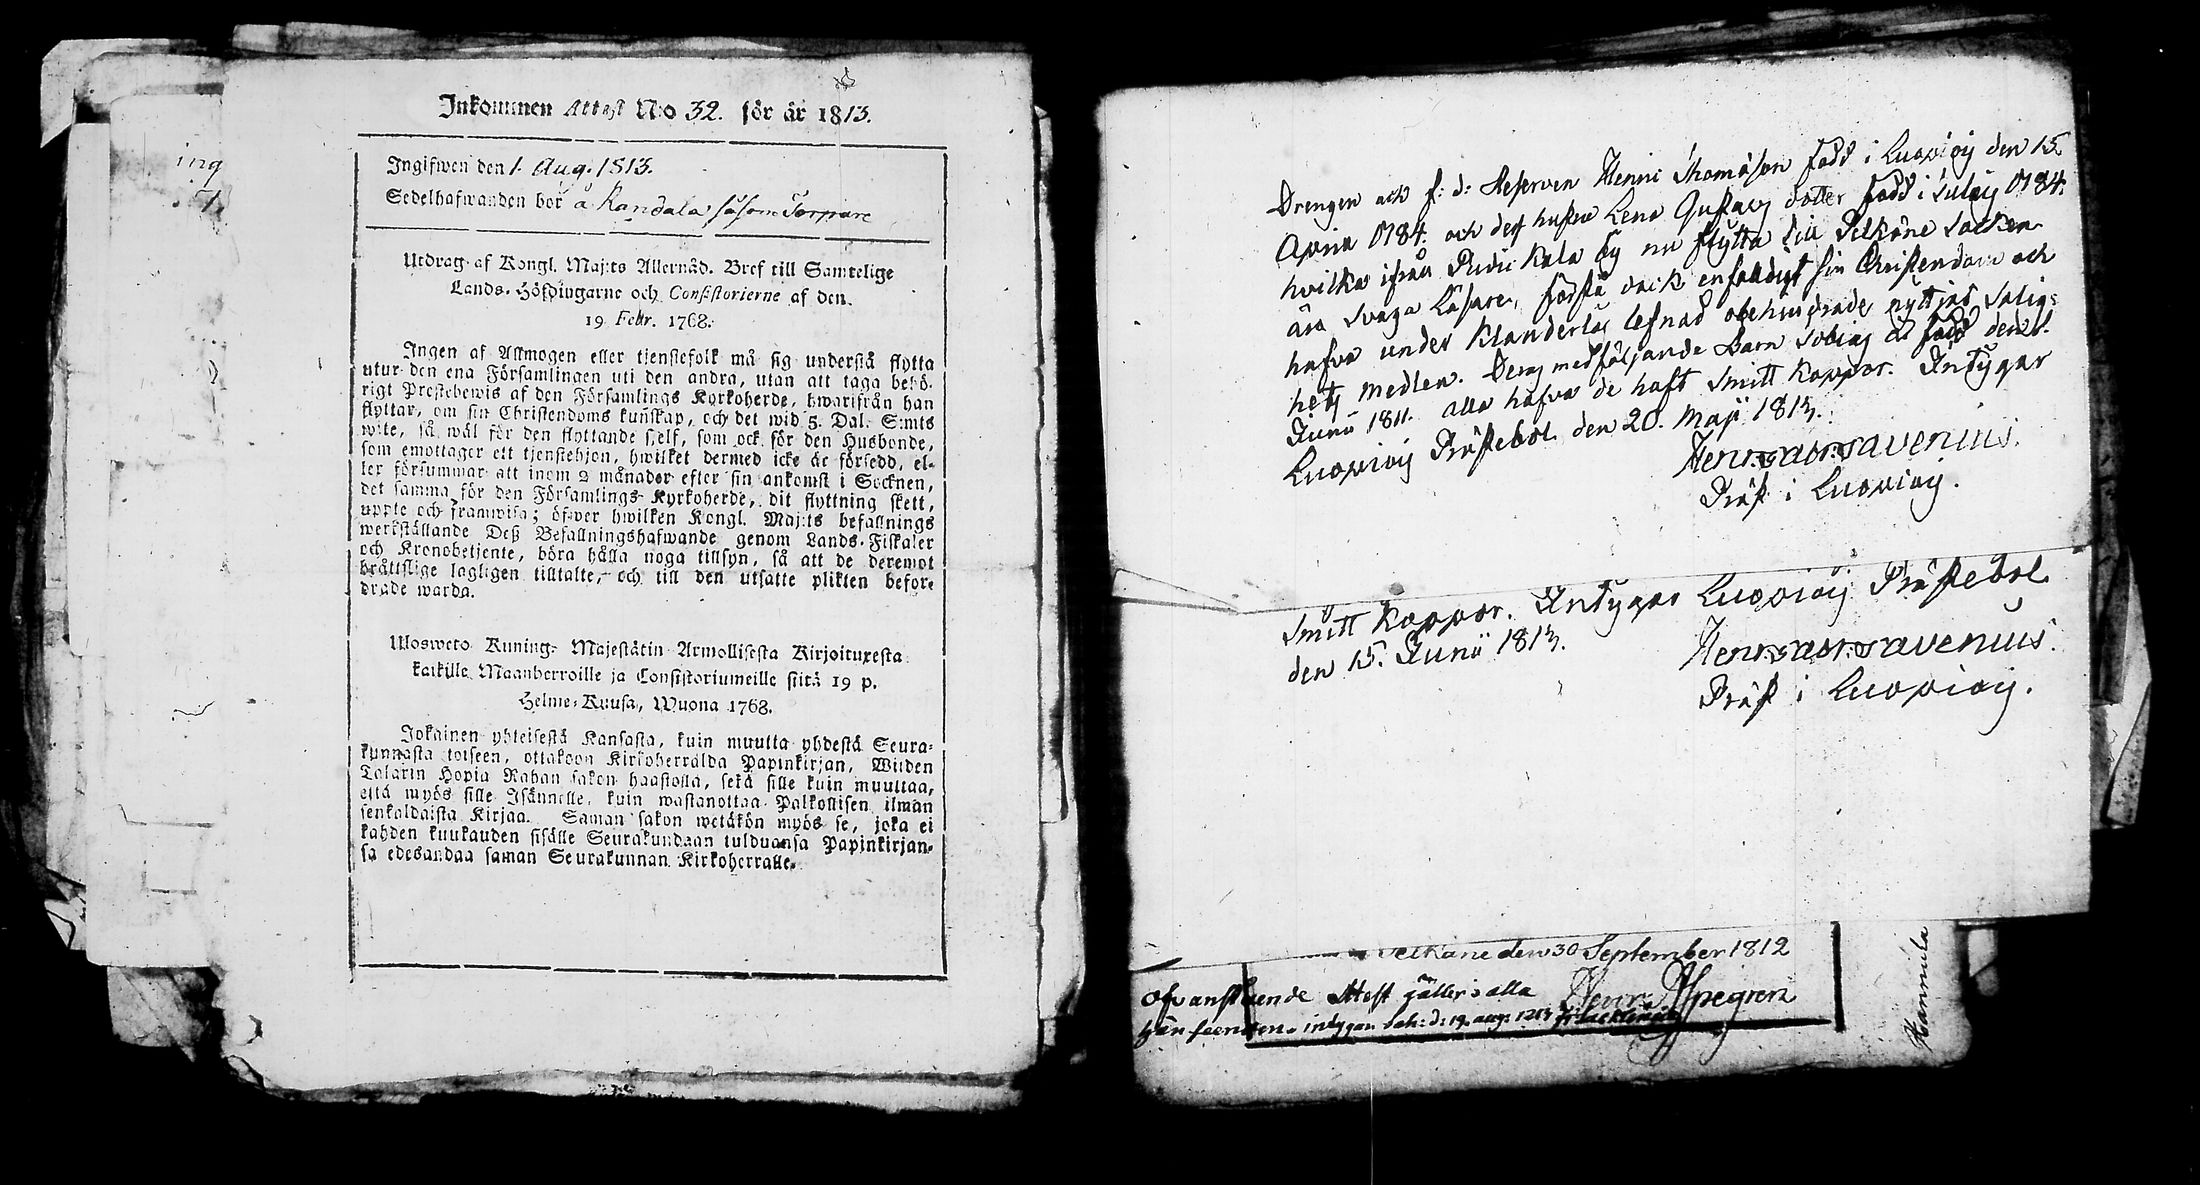 ing
Inkommen Attest N:o 32. för år 1813.
Ingifwen den 1. Aug. 1813.
Sedelhafwanden bor å Kandala såsom Torpare
Utdrag af Kongl. Maj:ts Allernåd. Bref till Samtelige
Lands-Höfdingarne och Consistorierne af den
19 Febr. 1768.
Ingen af Allmogen eller tjenstefolk må sig understå flytta
utur den ena Församlingen uti den andra, utan att taga behö-
rigt Prestebewis af den Församlings Kyrkoherde, hwarifrån han
flyttar, om sin Christendoms kunskap, och det wid 5. Dal. S:mts
wite, så wäl för den flyttande sjelf, som ock för den Husbonde,
som emottager ett tjenstehjon, hwilket dermed icke är försedd, el-
ler försummar att inom 2 månader efter sin ankomst i Socknen,
det samma för den Församlings Kyrkoherde, dit flyttning skett,
uppte och framwisa; öfwer hwilken Kongl. Maj:ts befallnings
werkställande Deß Befallningshafwande genom Lands-Fiskaler
och Kronobetjente, böra hålla noga tillsyn, så att de deremot
bråttslige lagligen tilltalte, och till den utsatte plikten befor-
drade warda.
Ulosweto Kuning. Majestätin Armollisesta Kirjoituxesta
kaikille Maanherroille ja Consistoriumeille siitä 19 p.
Helme-Kuusa, Wuona 1768.
Jokainen yhteisestä Kansasta, kuin muutta yhdestä Seura-
kunnasta toiseen, ottakoon Kirkoherralda Papinkirjan, Wiiden
Talarin Hopia Rahan sakon haastolla, sekä sille kuin muuttaa,
että myös sille Isännelle, kuin wastanottaa Palkollisen ilman
senkaldaista Kirjaa. Saman sakon wetäkön myös se, joka ei
kahden kuukauden sisälle Seurakundaan tulduansa Papinkirjan-
sa edesandaa saman Seurakunnan Kirkoherralle.
Drengen och f: d: Reserven Henric Thomasson född i Luopiois den 15
April 1784. och dess hustru Lena Gustavs dotter född i Sulais 1784.
hvilka ifrån Puduikala by nu flytta till Pelkäne Socken
äro svaga Läsare, förstå dock enfaldigt sin Christendom och
hafva under klanderlös lefnad obehindrade nyttjat Salig-
hets medlen. Deras medföljande Barn Tobias är född den 1.
Junii 1811. alla hafva de haft Smitt koppor. Intygar
Luopiois Prästebol den 20. Maji 1813.
Henr: Gabr: Avenius.
Präst i Luopiois.
Smitt koppor. Intygar Luopiois Prästebol
den 15. Junii 1813.
Henr: Gabr: Avenius.
Präst i Luopiois.
Pelkäne den 30 September 1812
Ofvanstående Attest gäller i alla
Henr. Aspegren
hänseenden, intygar
Hannula